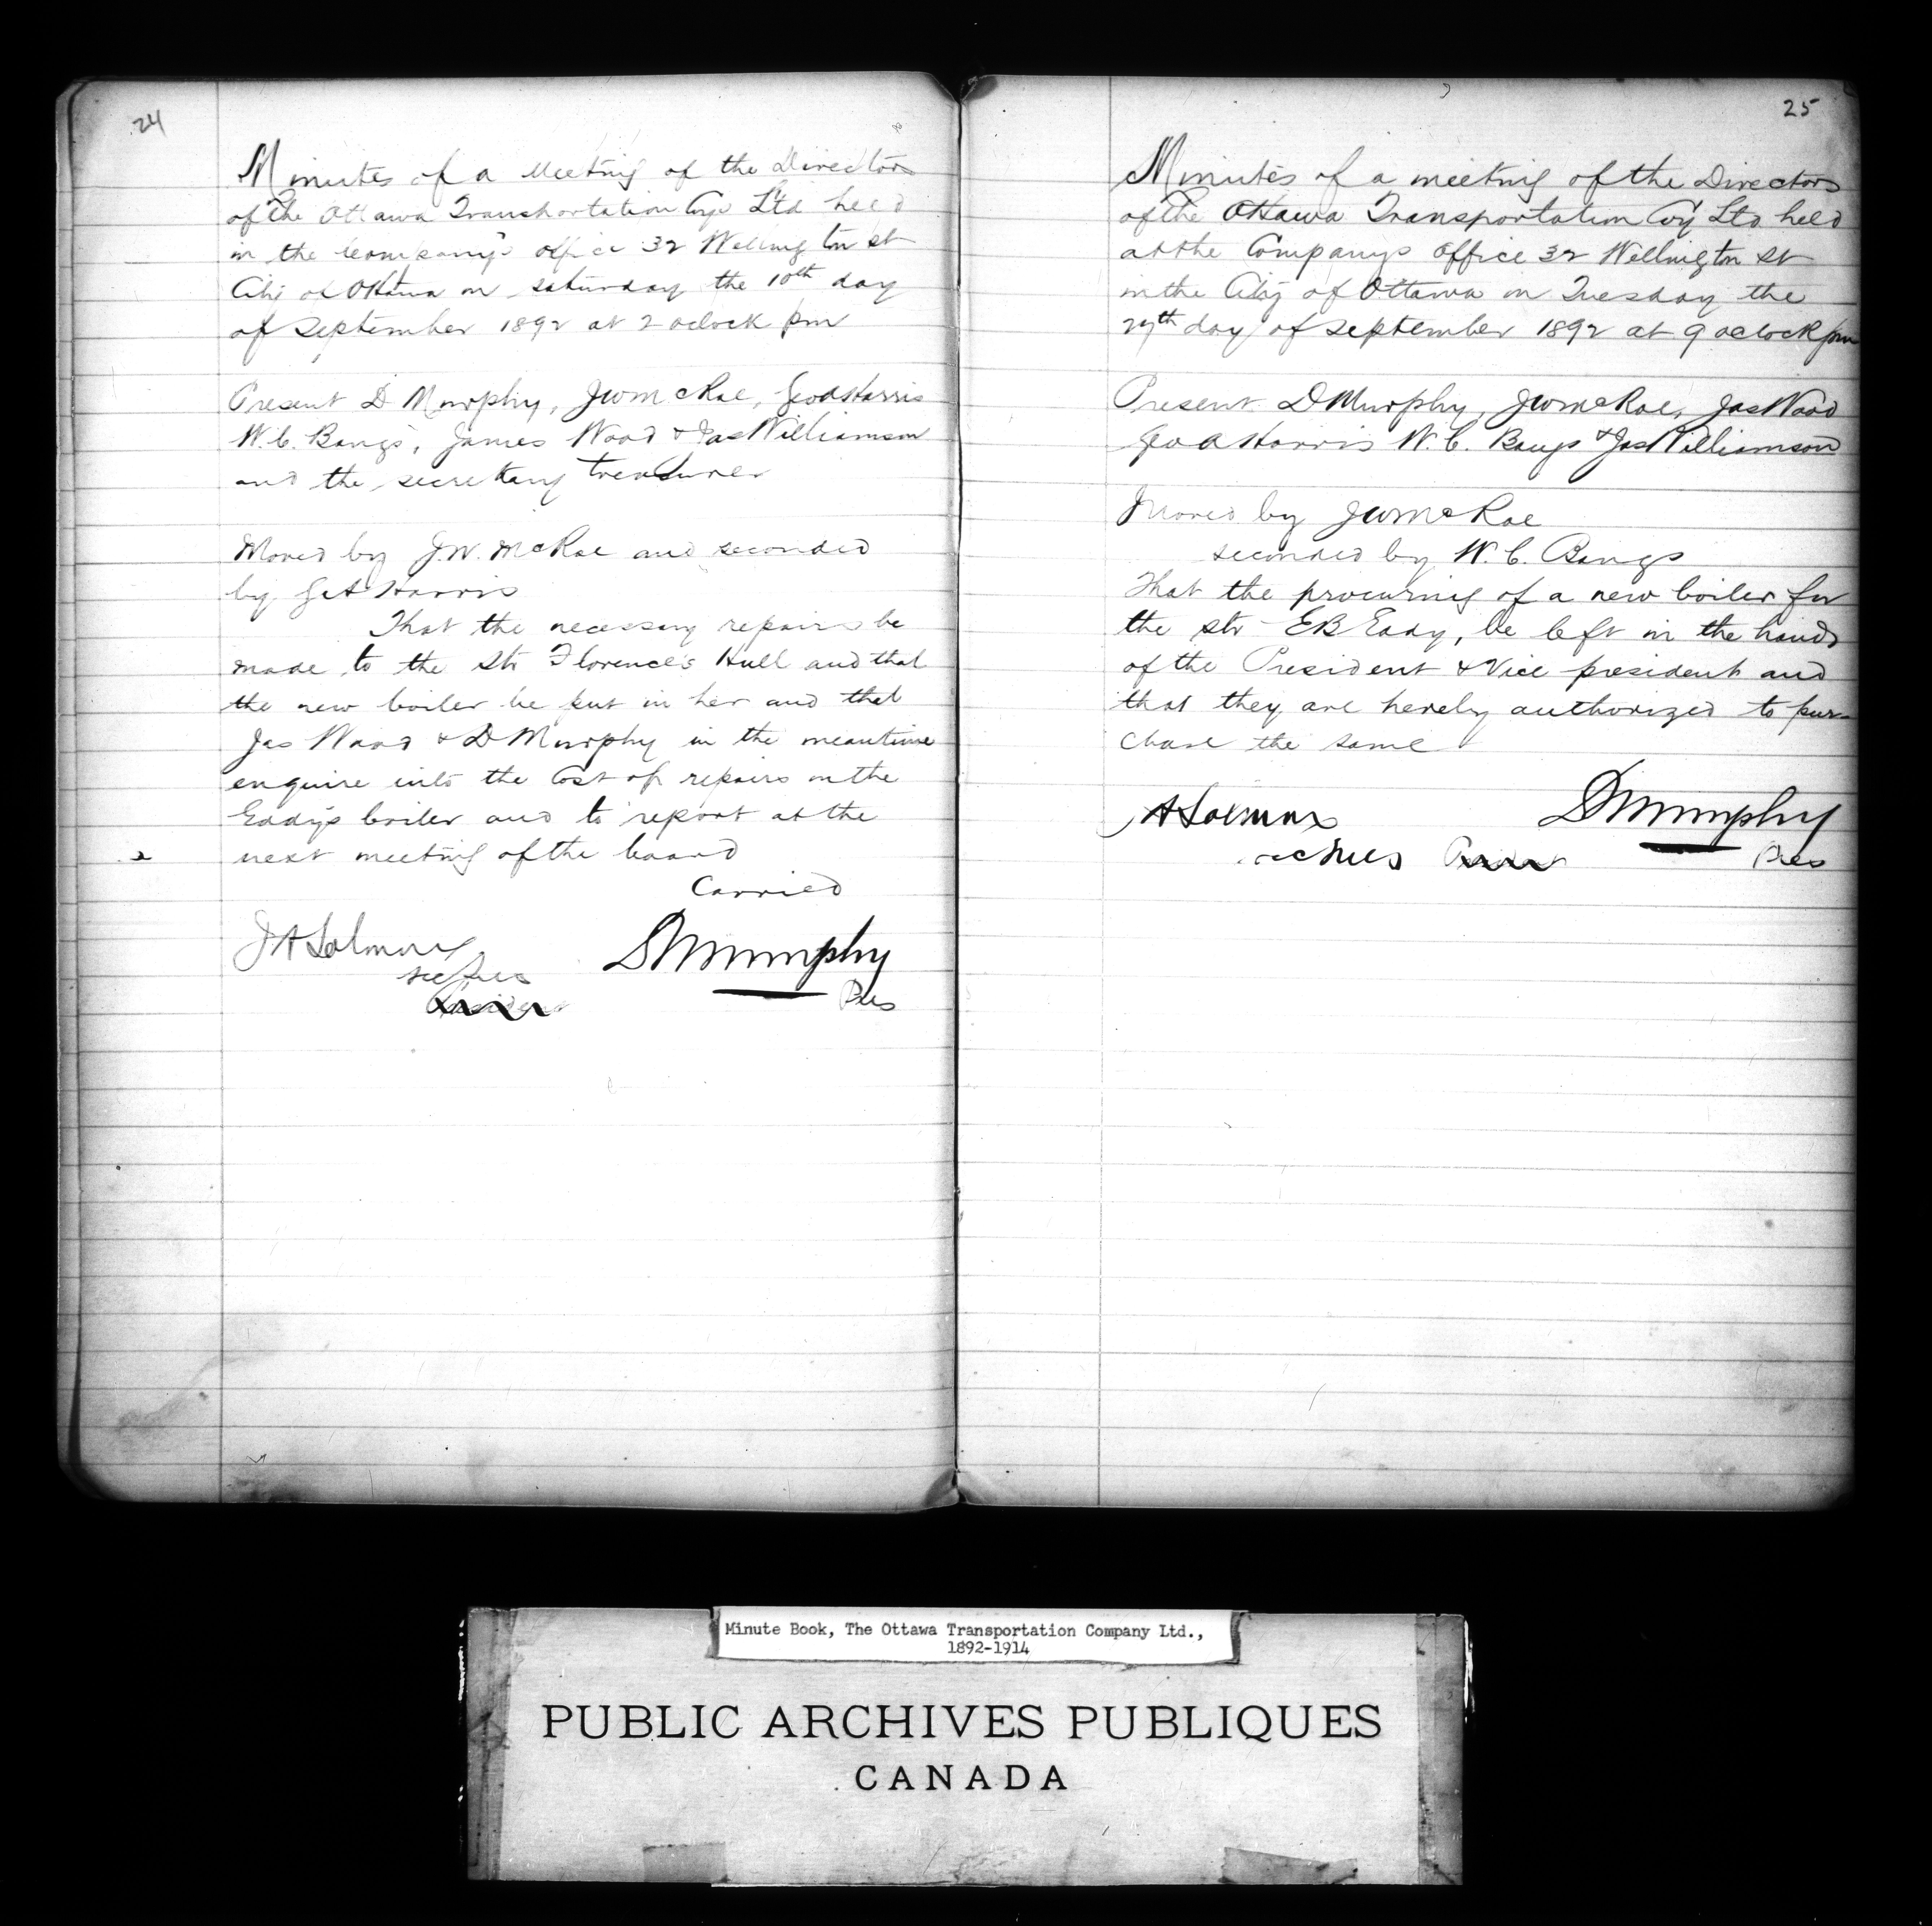 24
Minutes of a Meeting of the Directors
of the Ottawa Transportation Coy Ltd held
in the Company's office 32 Wellington st
City of Ottawa on saturday the 10th day
of September 1892 at 2 oclock pm
Present D Murphy, JWMcRae, GeoAHarris
W.C. Bangs, James Wood & JasWilliamson
and the secretary treasurer
Moved by J.W. McRae and seconded
by GA Harris
That the necessary repairs be
made to the Str Florence's Hull and that
the new boiler be put in her and that
Jas Wood & D Murphy in the meantime
enquire into the Cost of repairs on the
Eddy's boiler and to report at the
next meeting of the board
Carried
JASalmon DMurphy
sectres
President Pres
25
Minutes of a meeting of the Directors
of the Ottawa Transportation Coy Ltd held
at the Companys office 32 Wellington st
in the City of Ottawa on Tuesday the
27th day of September 1892 at 9 oclock pm
Present DMurphy, JWMcRae, JasWood
GeoAHarris W.C. Bangs & JasWilliamson
Moved by JWMcRae
seconded by W.C. Bangs
That the procuring of a new boiler for
the str EB Eddy, be left in the hands
of the President & Vice president and
that they are hereby authorized to pur-
chase the same
ASalmon DMurphy
sectres Pres
Minute Book, The Ottawa Transportation Company Ltd.,
1892-1914
PUBLIC ARCHIVES PUBLIQUES
CANADA